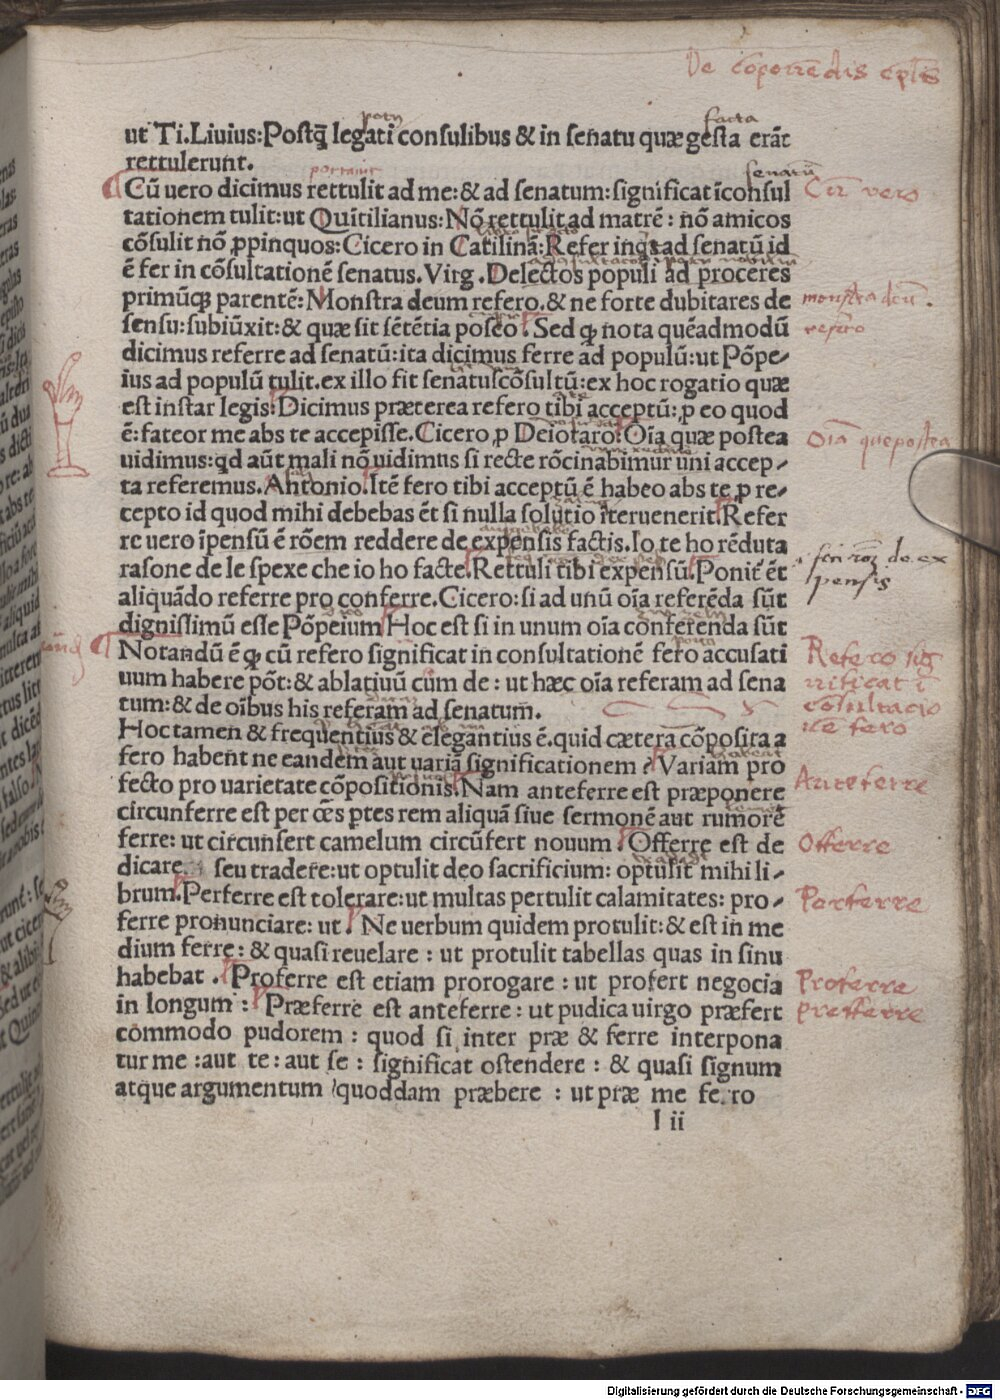 De cõponendis eplis
ut Ti.Liuius:Postq̃ legati consulibus & in senatu quæ gesta erãt
rettulerunt.
Cũ uero dicimus rettulit ad me:& ad senatum:significat ĩconsul
tationem tulit:ut Quĩtilianus:Nõ rettulit ad matrẽ: nõ amicos
cõsulit nõ ꝓpinquos:Cicero in Catilinã:Refer inqͥt ad senatũ id
ẽ fer in cõsultationẽ senatus.Virg.Delectos populi ad proceres
primũqꝫ parentẽ:Monstra deum refero.& ne forte dubitares de
sensu:subiũxit:& quæ sit sẽtẽtia posco. Sed ꝙ nota quẽadmodũ
dicimus referre ad senatũ:ita dicimus ferre ad populũ:ut Põpe⸗
ius ad populũ tulit.ex illo fit senatuscõsultũ:ex hoc rogatio quæ
est instar legis:Dicimus præterea refero tibi acceptũ:ꝓ eo quod
ẽ:fateor me abs te accepisse.Cicero ꝓ Deiotaro:Oĩa quæ postea
uidimus:qd aũt mali nõ uidimus si recte rõcinabimur uni accep⸗
ta referemus.Antonio.Itẽ fero tibi acceptũ ẽ habeo abs te ꝓ re⸗
cepto id quod mihi debebas ẽt si nulla solutio ĩteruenerit.Refer
re uero ĩpensũ ẽ rõem reddere de expensis factis.Io te ho rẽduta
rasone de le spexe che io ho facte.Rettuli tibi expensũ.Ponit̃ ẽt
aliquãdo referre pro conferre.Cicero:si ad unũ oĩa referẽda sũt
dignissimũ esse Põpeium Hoc est si in unum oĩa conferenda sũt
Notandũ ẽ ꝙ cũ refero significat in consultationẽ fero accusati
uum habere põt:& ablatiuũ cum de: ut hæc oĩa referam ad sena
tum:& de oĩbus his referam ad senatum.
Hoc tamen & frequentius & elegantius ẽ.quid cætera cõposita a
fero habent ne eandem aut uariã significationem? Variam pro
fecto pro uarietate cõpositionis Nam anteferre est præponere
circunferre est per oẽs ptes rem aliquã siue sermonẽ aut rumorẽ
ferre: ut circunfert camelum circũfert nouum Offerre est de
dicare seu tradere:ut optulit deo sacrificium: optulit mihi li⸗
brum.Perferre est tolerare:ut multas pertulit calamitates: pro⸗
ferre pronunciare: ut Ne uerbum quidem protulit:& est in me
dium ferre: & quasi reuelare : ut protulit tabellas quas in sinu
habebat . Proferre est etiam prorogare : ut profert negocia
in longum : Præferre est anteferre : ut pudica uirgo præfert
commodo pudorem : quod si inter præ & ferre interpona
tur me :aut te: aut se : significat ostendere : & quasi signum
atque argumentum quoddam præbere : ut præ me fero
I ii
facta
senatũ
Cũ vero
monstra deũ.
refero
Oĩa que postea
de ex
pensis
Refero sig
nificat ĩ
cõsultacio
ne fero
Anteferre
Offerre
Perferre
Proferre
preferre
Digitalisierung gefördert durch die Deutsche Forschungsgemeinschaft - DFG